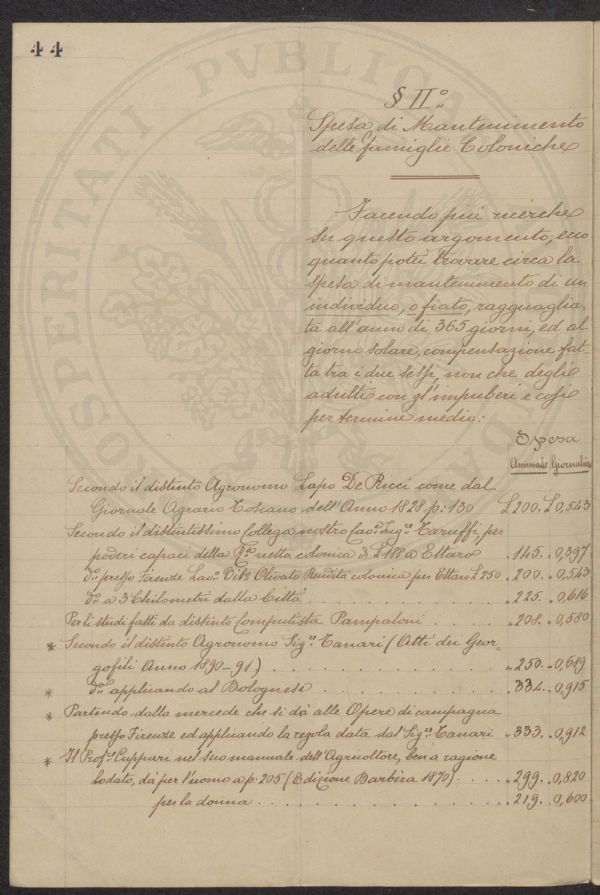 44
PROSPERITATI PVBLICAE
§ II.°
Spesa di Mantenimento
delle famiglie Coloniche
Facendo più ricerche
su questo argomento, ecco
quanto potei trovare circa la
spesa di mantenimento di un
individuo, o fiato, ragguaglia-
ta all'anno di 365 giorni, ed al
giorno solare, compensazione fat-
ta tra i due sessi, non che degli
adulti con gl'impuberi e così
per termine medio:
Spesa
Annuale Giornaliera
Secondo il distinto Agronomo Lapo De Ricci come dal
Giornale Agrario Toscano dell'Anno 1828 p: 130 £ 200. £ 0,543
Secondo il distintissimo Collega nostro Cav.r Ing.e Taruffi per
poderi capaci della netta colonica di £ 188 a Ettaro " 145. " 0,397
d.° presso Firenze Olivato Rendita colonica per Ettaro £ 250 " 200. " 0,543
d.° a 3 Chilometri dalla Città " 225. " 0,616
Per li studi fatti da distinto Computista Pampaloni " 208. " 0,580
* Secondo il distinto Agronomo Sig.r Tanari (Atti dei Geor-
gofili Anno 1890-91) " 250. " 0,689
* d.° applicando al Bolognese " 334. " 0,915
* Partendo dalla mercede che si dà alle Opere di campagna
presso Firenze ed applicando la regola data dal Sig.r Tanari " 333. " 0,912
* Il Prof.r Cuppari nel suo manuale dell'Agricoltore, ben a ragione
lodato, dà per l'uomo a p: 205 (Edizione Barbèra 1870) " 299. " 0,820
per la donna " 219. " 0,600